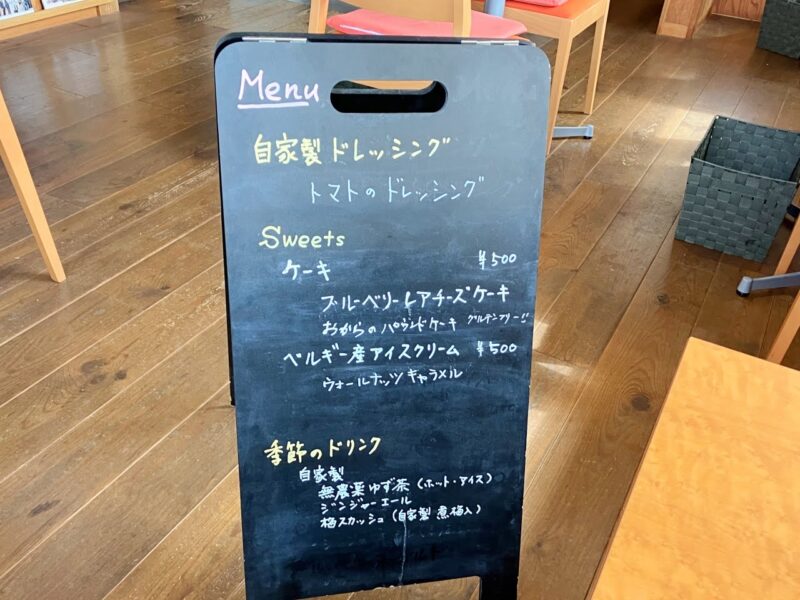 Menu
自家製ドレッシング
トマトのドレッシング
Sweets
ケーキ ¥500
ブルーベリーレアチーズケーキ
おからのパウンドケーキ グルテンフリー!!
ベルギー産アイスクリーム ¥500
ウォールナッツキャラメル
季節のドリンク
自家製
無農薬ゆず茶(ホット・アイス)
ジンジャーエール
梅スカッシュ(自家製 煮梅入)